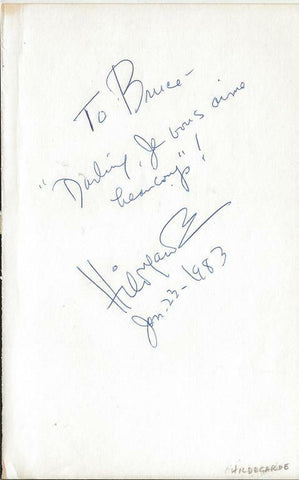 To Bruce -
"Darling, Je vous aime
beaucoup"!
Hildegarde
Jan. 23 - 1983
HILDEGARDE